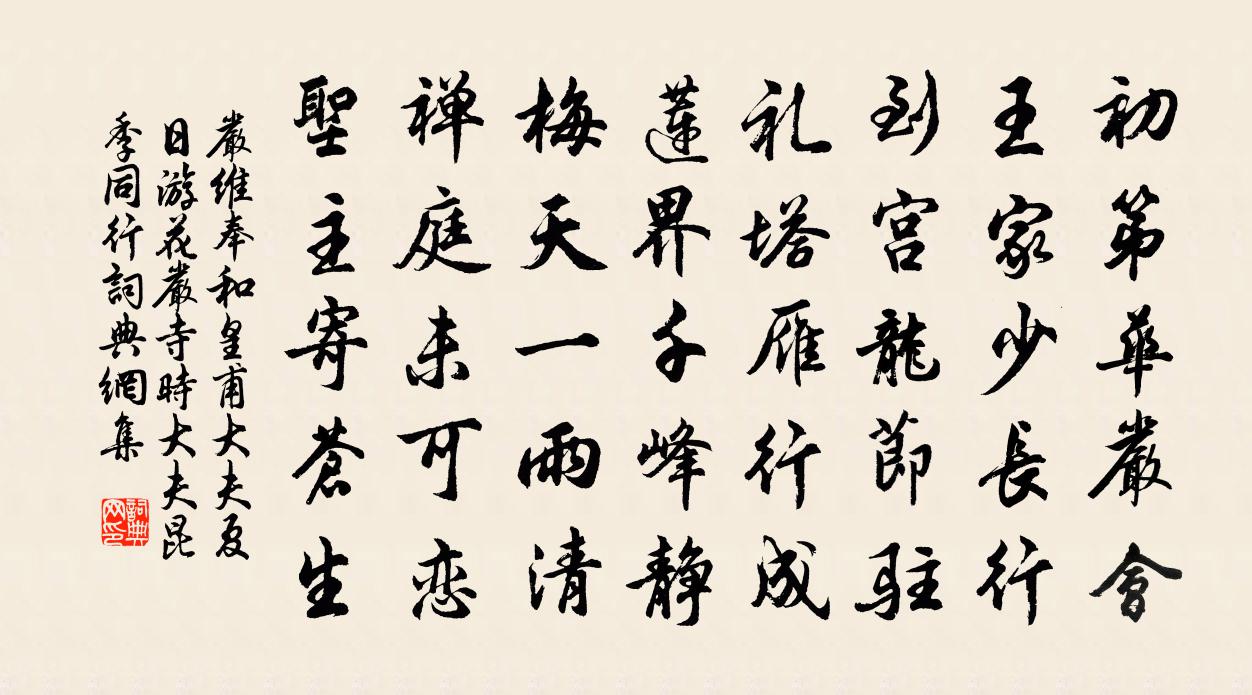 初第華嚴會
王家少長行
到宮龍節駐
礼塔雁行成
蓮界千峰靜
梅天一雨清
禅庭未可恋
聖主寄蒼生
嚴維奉和皇甫大夫夏
日游花嚴寺時大夫昆
季同行詞典網集
詞典
网印